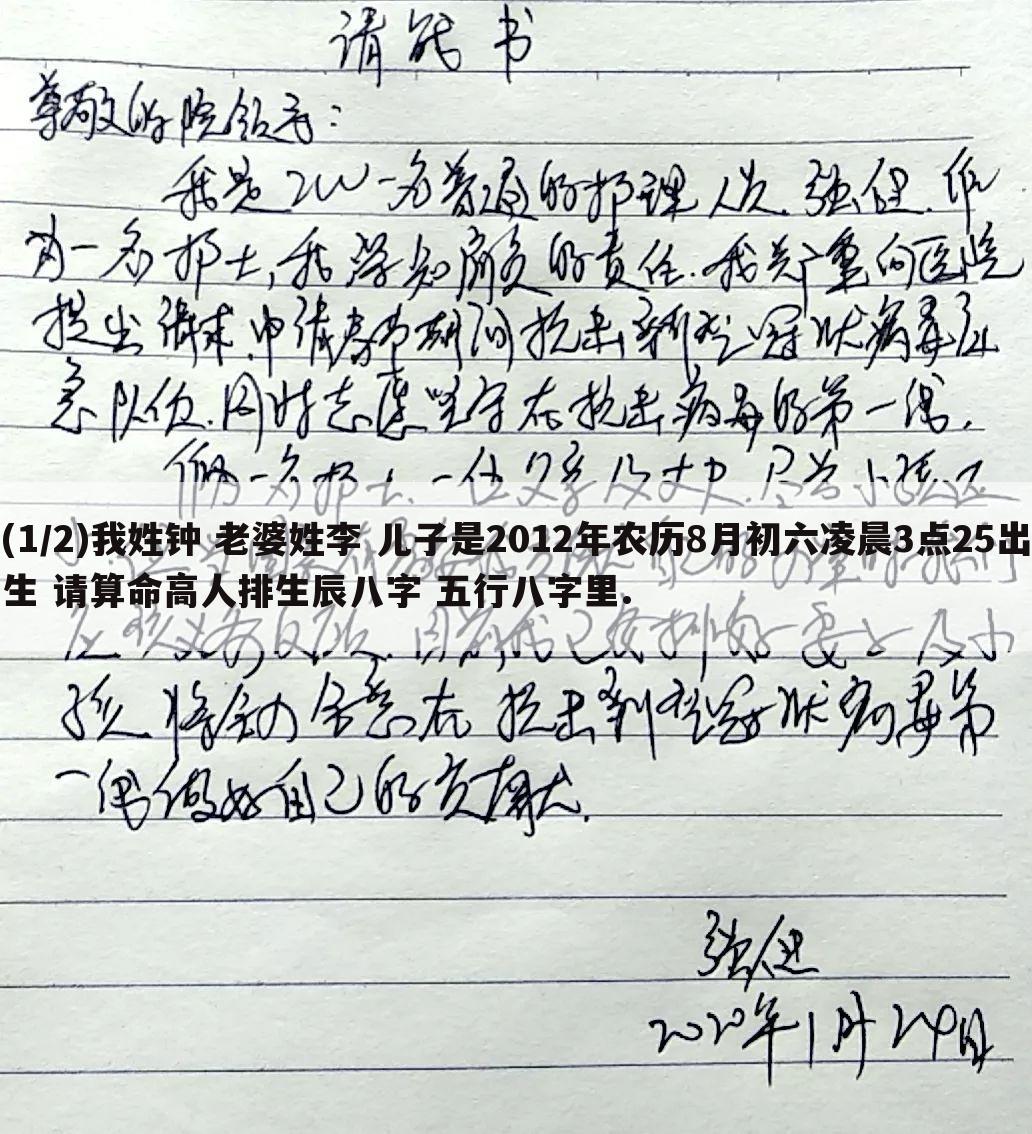 请战书
尊敬的院领导：
我是ICU一名普通的护理人员.张健.作
为一名护士,我深知肩负的责任.我郑重向医院
提出请求.申请春节期间抗击新型冠状病毒应
急队伍.同时志愿坚守在抗击病毒的第一线.
作为一名护士.一位父亲及丈夫.尽管小孩还
(1/2)我姓钟 老婆姓李 儿子是2012年农历8月初六凌晨3点25出
生 请算命高人排生辰八字 五行八字里.
应该义务反顾.目前我已安排好妻子及小
孩.将全力全意在抗击新型冠状病毒第
一线做好自己的贡献.
张健
2020年1月24日